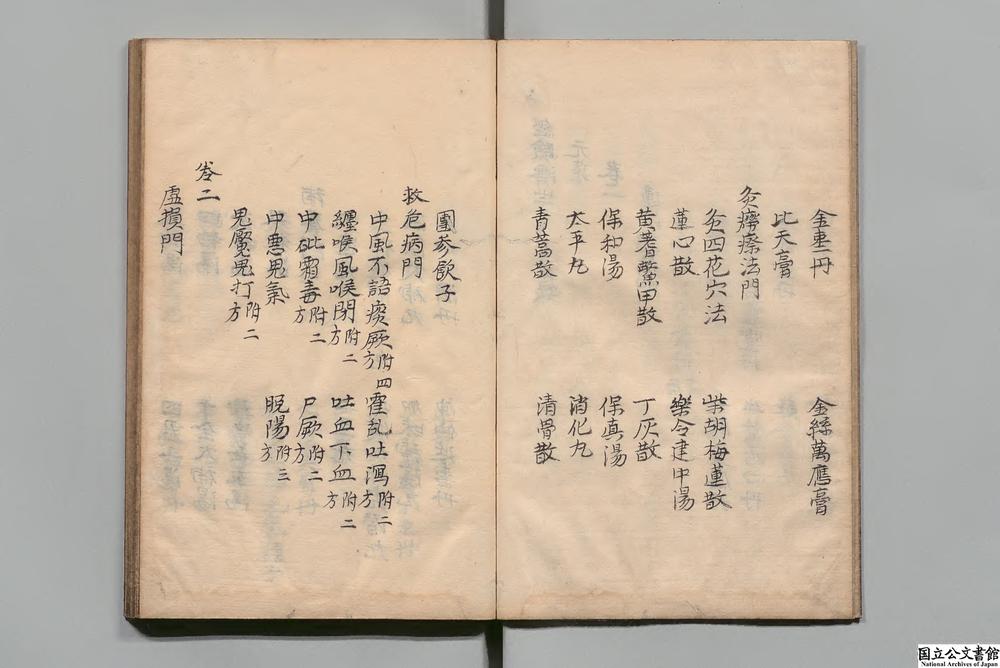 金棗丹　金絲萬應膏
比天膏
灸癆瘵法門
灸四花穴法　柴胡梅蓮散
蓮心散　樂令建中湯
黄蓍鱉甲散　丁灰散
保和湯　保真湯
太平丸　消化丸
青蒿散　清骨散
團参飲子
救危病門
中風不語痰厥附四方　霍乱吐瀉附二方
纏喉風喉閉附二方　吐血下血附二方
中砒霜毒附二方　尸厥附二方
中悪鬼氣　脱陽附三方
鬼魘鬼打附二方
卷二
虛損門
国立公文書館
National Archives of Japan